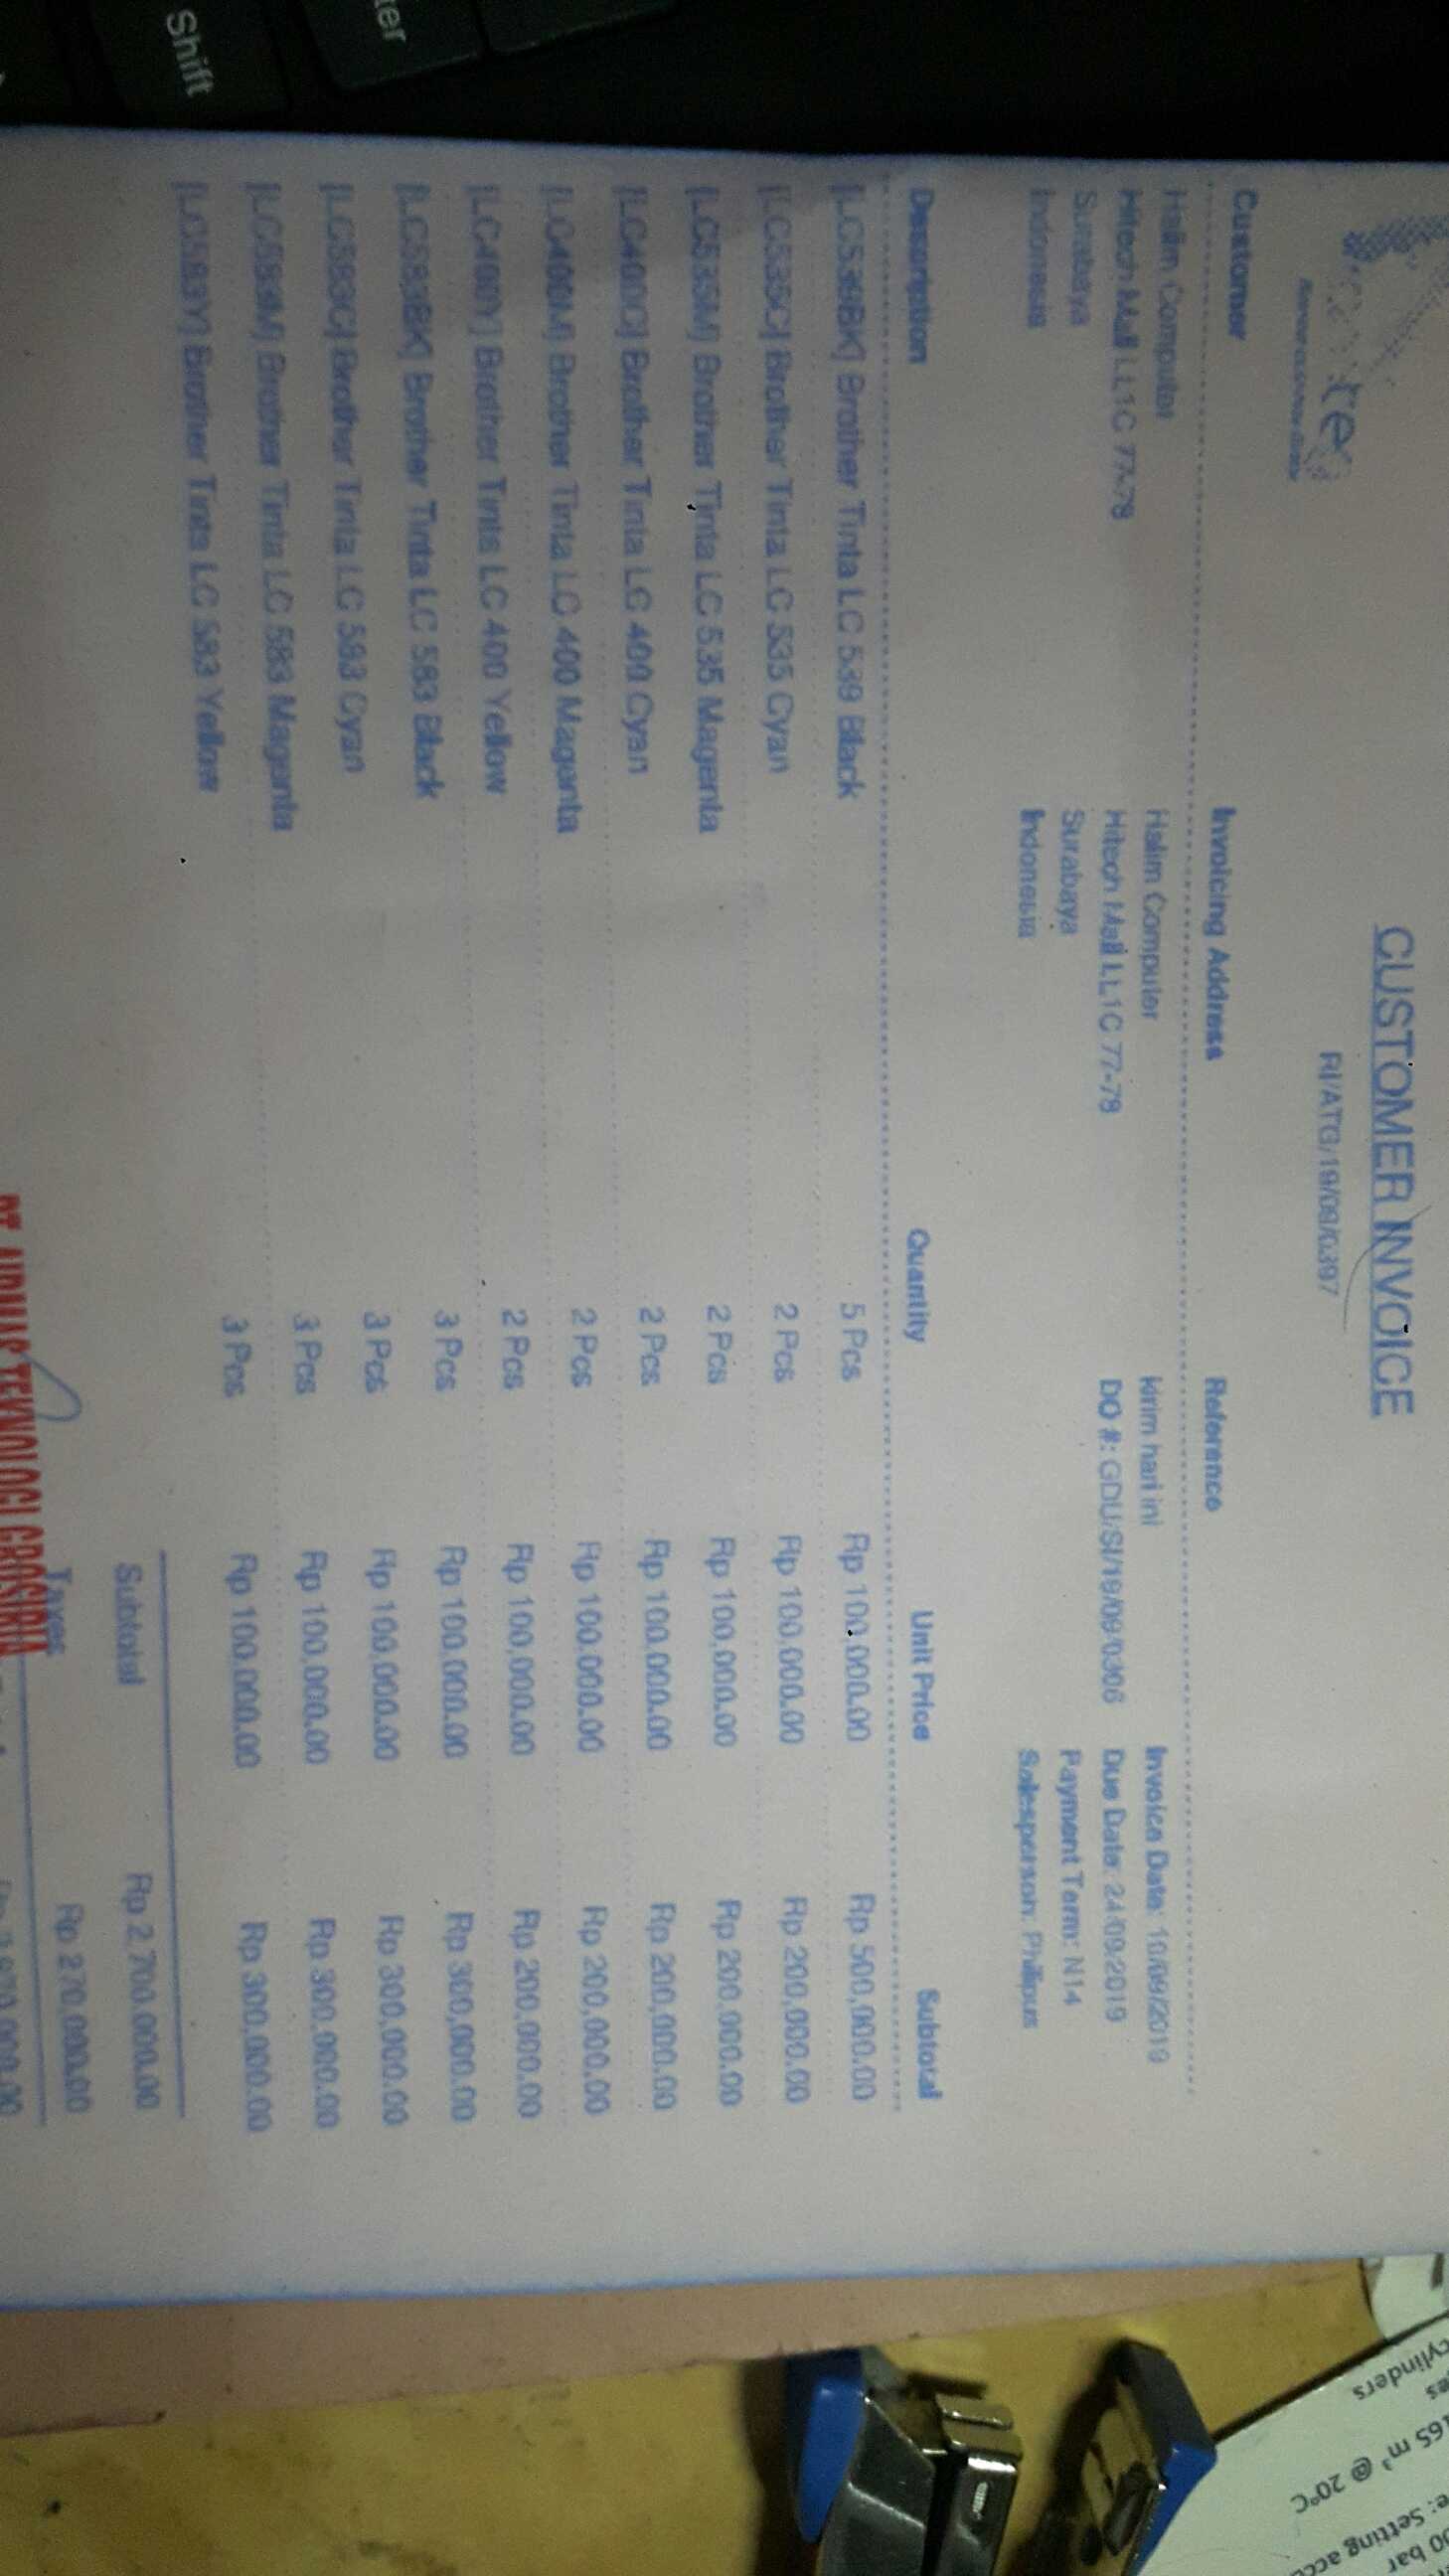 CUSTOMER INVOICE
RI/ATG/19/09/0397
Customer
Invoicing Address
Reference
Halim Computer
Halim Computer
kirim hari ini
Invoice Date: 10/09/2019
Hitech Mall Lt.1 C 77-78
Hitech Mall Lt.1 C 77-78
DO #: GDU/SI/19/09/0306
Due Date: 24/09/2019
Surabaya
Surabaya
Payment Term: N14
Indonesia
Indonesia
Salesperson: Philipus
Description Quantity Unit Price Subtotal
[LC539BK] Brother Tinta LC 539 Black 5 Pcs Rp 100.000.00 Rp 500,000.00
[LC535C] Brother Tinta LC 535 Cyan 2 Pcs Rp 100,000.00 Rp 200,000.00
[LC535M] Brother Tinta LC 535 Magenta 2 Pcs Rp 100,000.00 Rp 200,000.00
[LC400C] Brother Tinta LC 400 Cyan 2 Pcs Rp 100,000.00 Rp 200,000.00
[LC400M] Brother Tinta LC 400 Magenta 2 Pcs Rp 100,000.00 Rp 200,000.00
[LC400Y] Brother Tinta LC 400 Yellow 2 Pcs Rp 100,000.00 Rp 200,000.00
[LC583BK] Brother Tinta LC 583 Black 3 Pcs Rp 100,000.00 Rp 300,000.00
[LC583C] Brother Tinta LC 583 Cyan 3 Pcs Rp 100,000.00 Rp 300,000.00
[LC583M] Brother Tinta LC 583 Magenta 3 Pcs Rp 100,000.00 Rp 300,000.00
[LC583Y] Brother Tinta LC 583 Yellow 3 Pcs Rp 100,000.00 Rp 300,000.00
Subtotal Rp 2,700,000.00
Taxes Rp 270,000.00
TEKNOLOGI GROSIRIA
Shift
ter
cylinders
165 m³ @ 20°C
e: Setting acc
00 bar